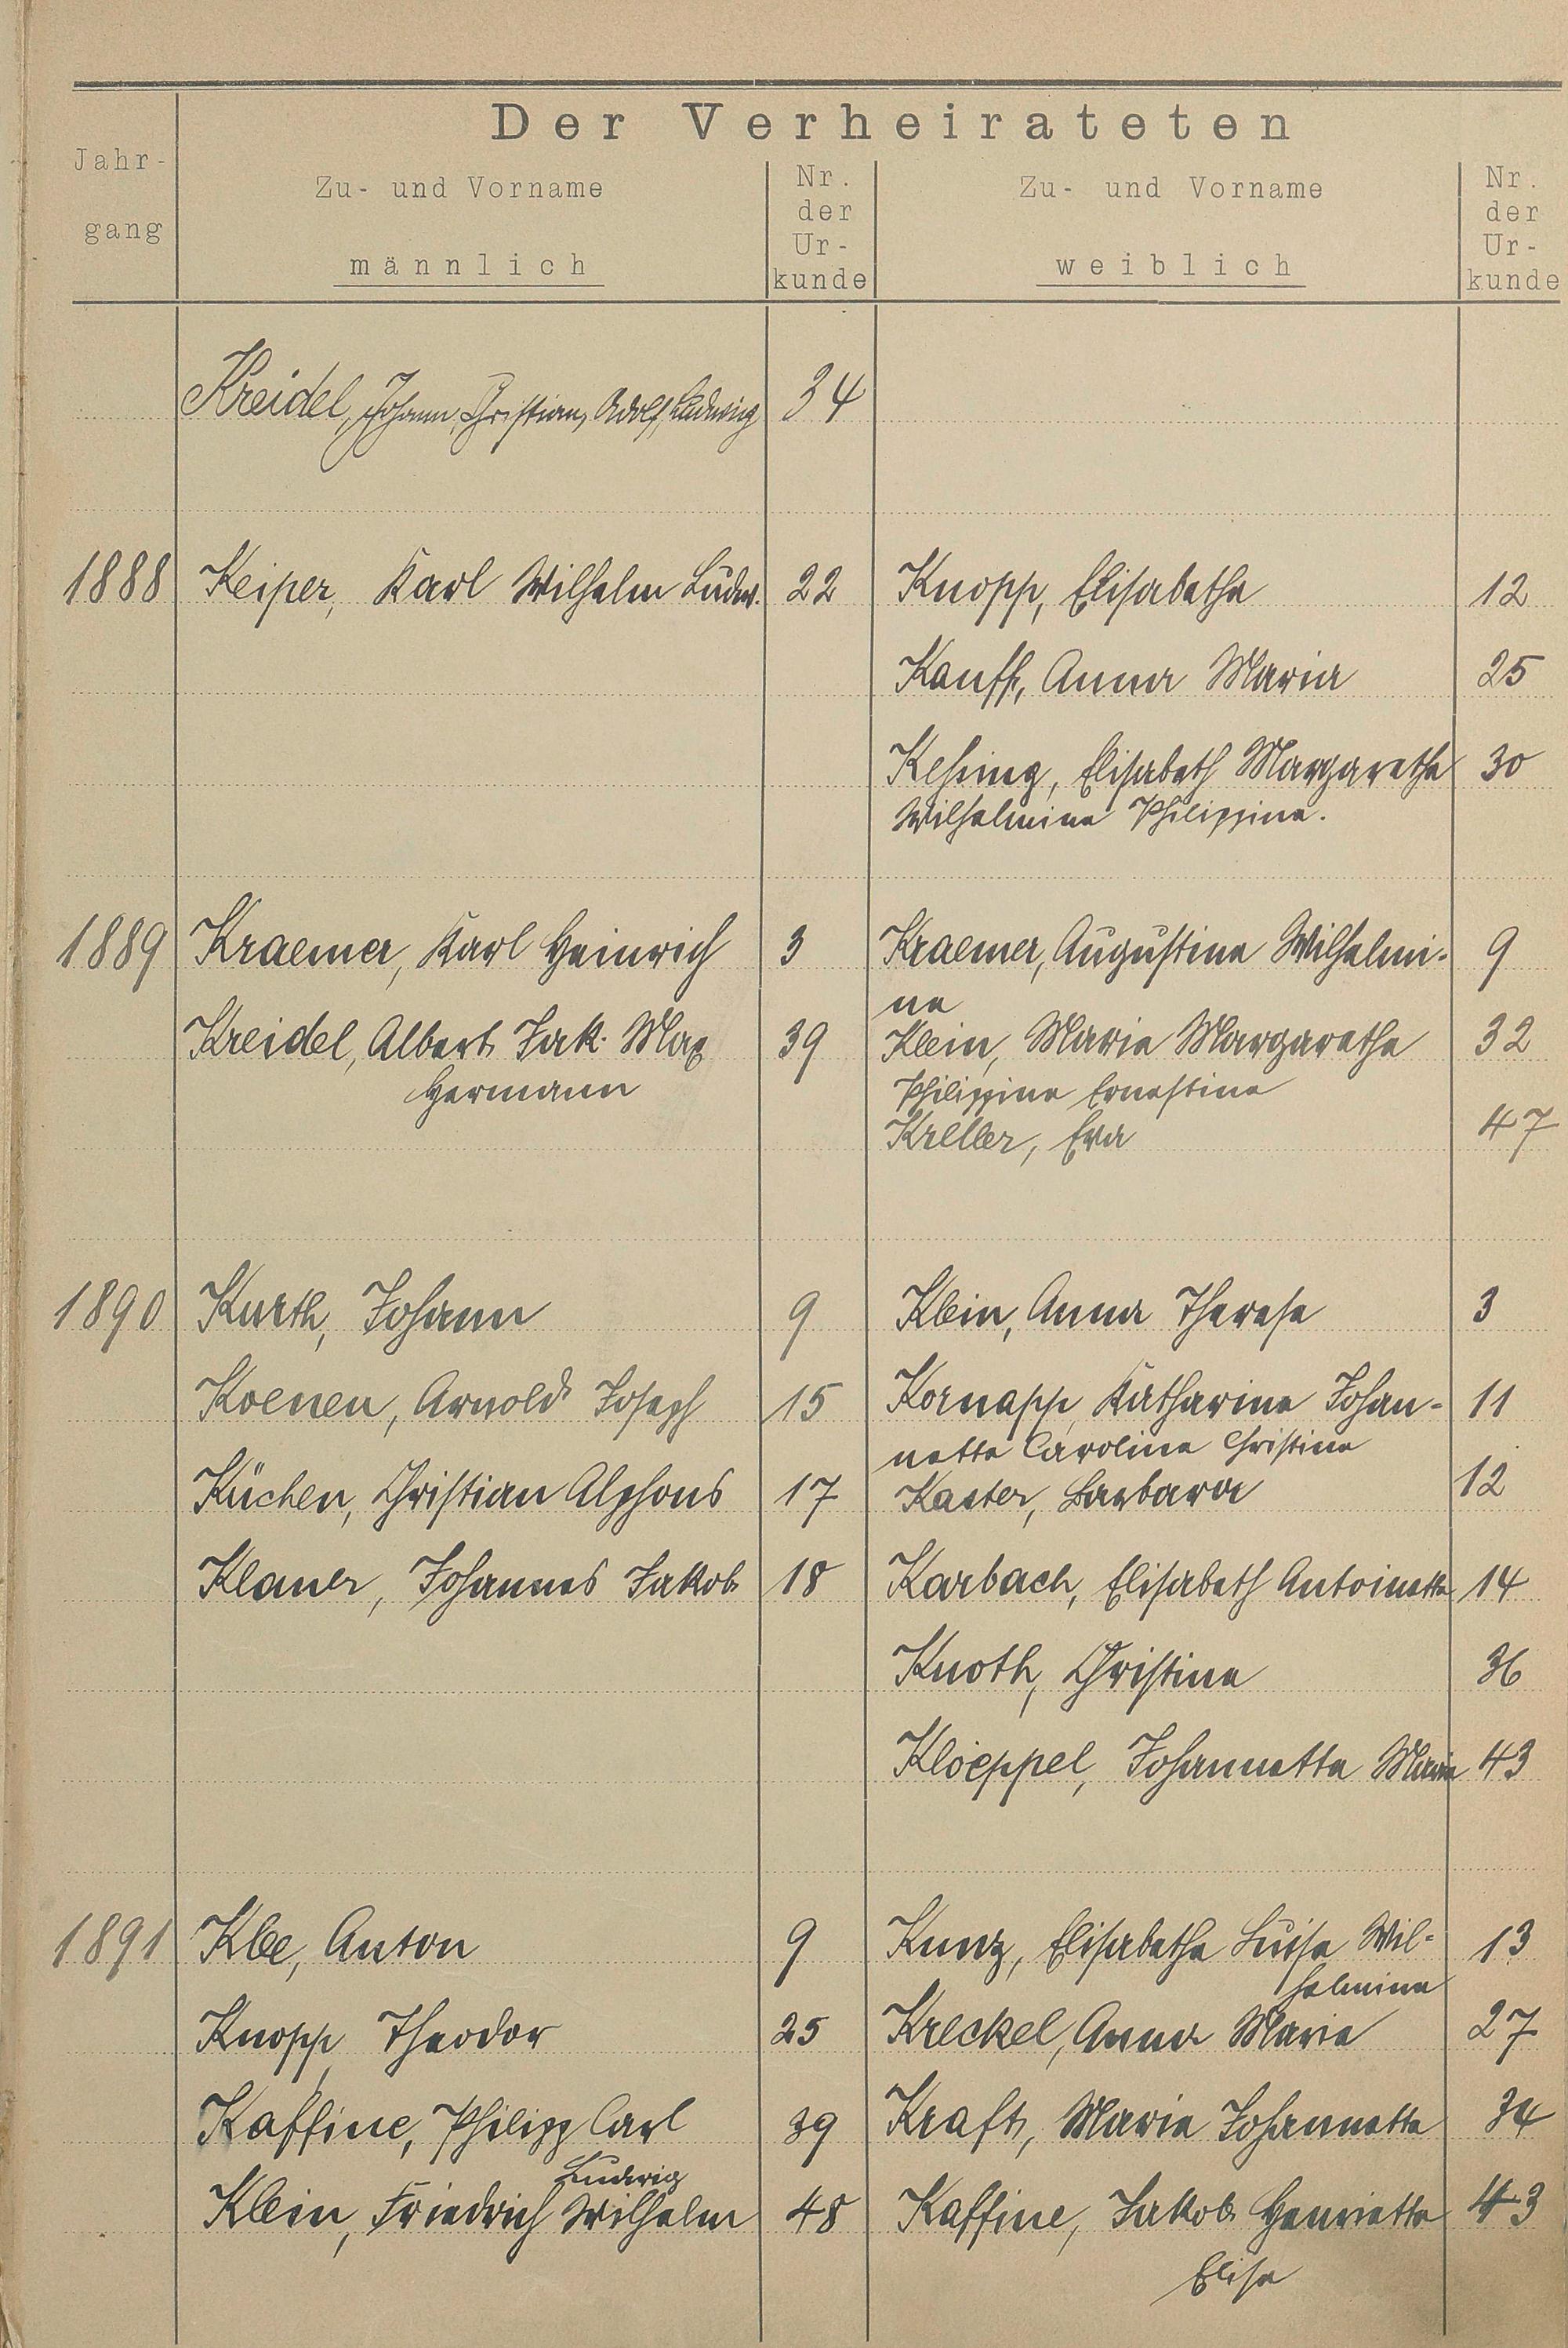 Der Verheirateten
Jahr-
gang
Zu- und Vorname
männlich
Nr.
der
Ur-
kunde
Zu- und Vorname
weiblich
Nr.
der
Ur-
kunde
Kreidel, Johann, Christian, Adolf, Ludwig 34
1888 Keiper, Karl Wilhelm Ludw. 22 Knopp, Elisabetha 12
Kauff, Anna Maria 25
Keßing, Elisabeth Margaretha 30
Wilhelmine Philippine.
1889 Kraemer, Karl Heinrich 3 Kraemer, Augustine Wilhelmi- 9
ne
Kreidel, Albert Jak. Max 39 Klein, Marie Margaretha 32
Hermann Philippine Ernestine
Kreller, Eva 47
1890 Kurth, Johann 9 Klein, Anna Therese 3
Koenen, Arnold Joseph 15 Kornapp, Katharine Johan- 11
nette Caroline Christine
Küchen, Christian Alphons 17 Kaster, Barbara 12
Klauer, Johannes Jakob 18 Karbach, Elisabeth Antoinette 14
Knoth, Christine 36
Kloeppel, Johannette Marie 43
1891 Klee, Anton 9 Kunz, Elisabethe Luise Wil- 13
helmine
Knopp, Theodor 25 Kreckel, Anna Marie 27
Kaffine, Philipp Carl 39 Kraft, Marie Johannette 34
Ludwig
Klein, Friedrich Wilhelm 48 Kaffine, Jakob. Henriette 43
Elise